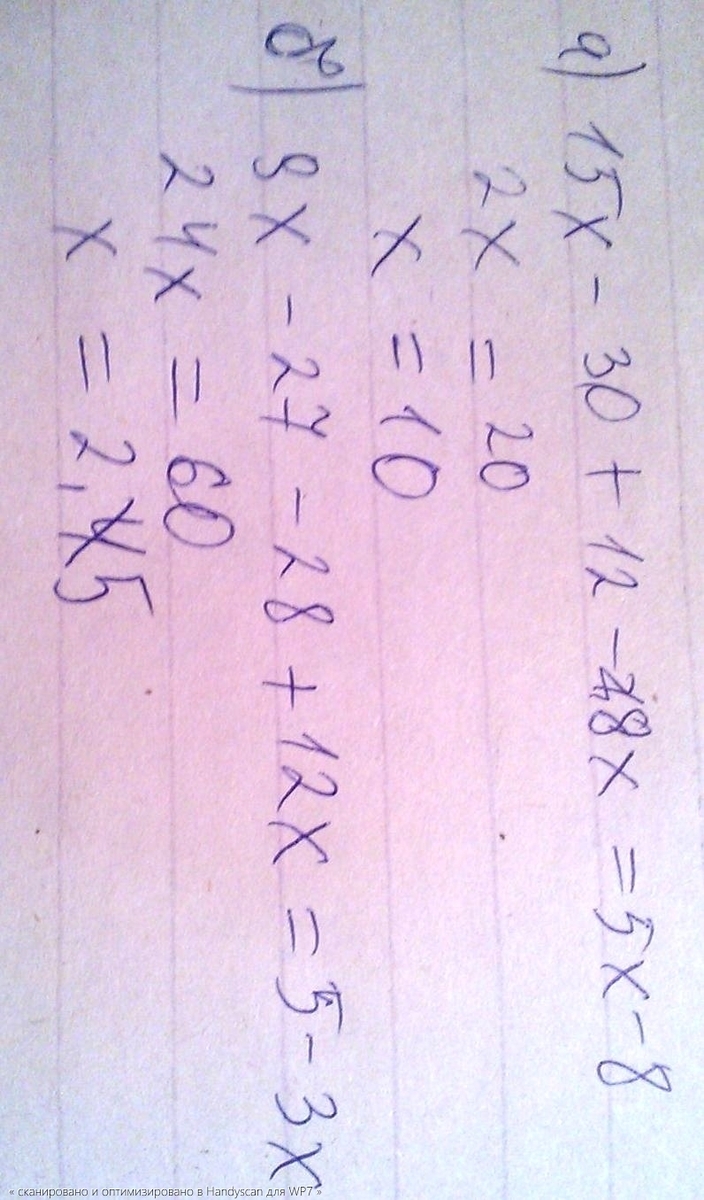 а) 15x - 30 + 12 - 8x = 5x - 8
2x = 20
x = 10
б) 9x - 27 - 28 + 12x = 5 - 3x
24x = 60
x = 2,5
« сканировано и оптимизировано в Handyscan для WP7 »